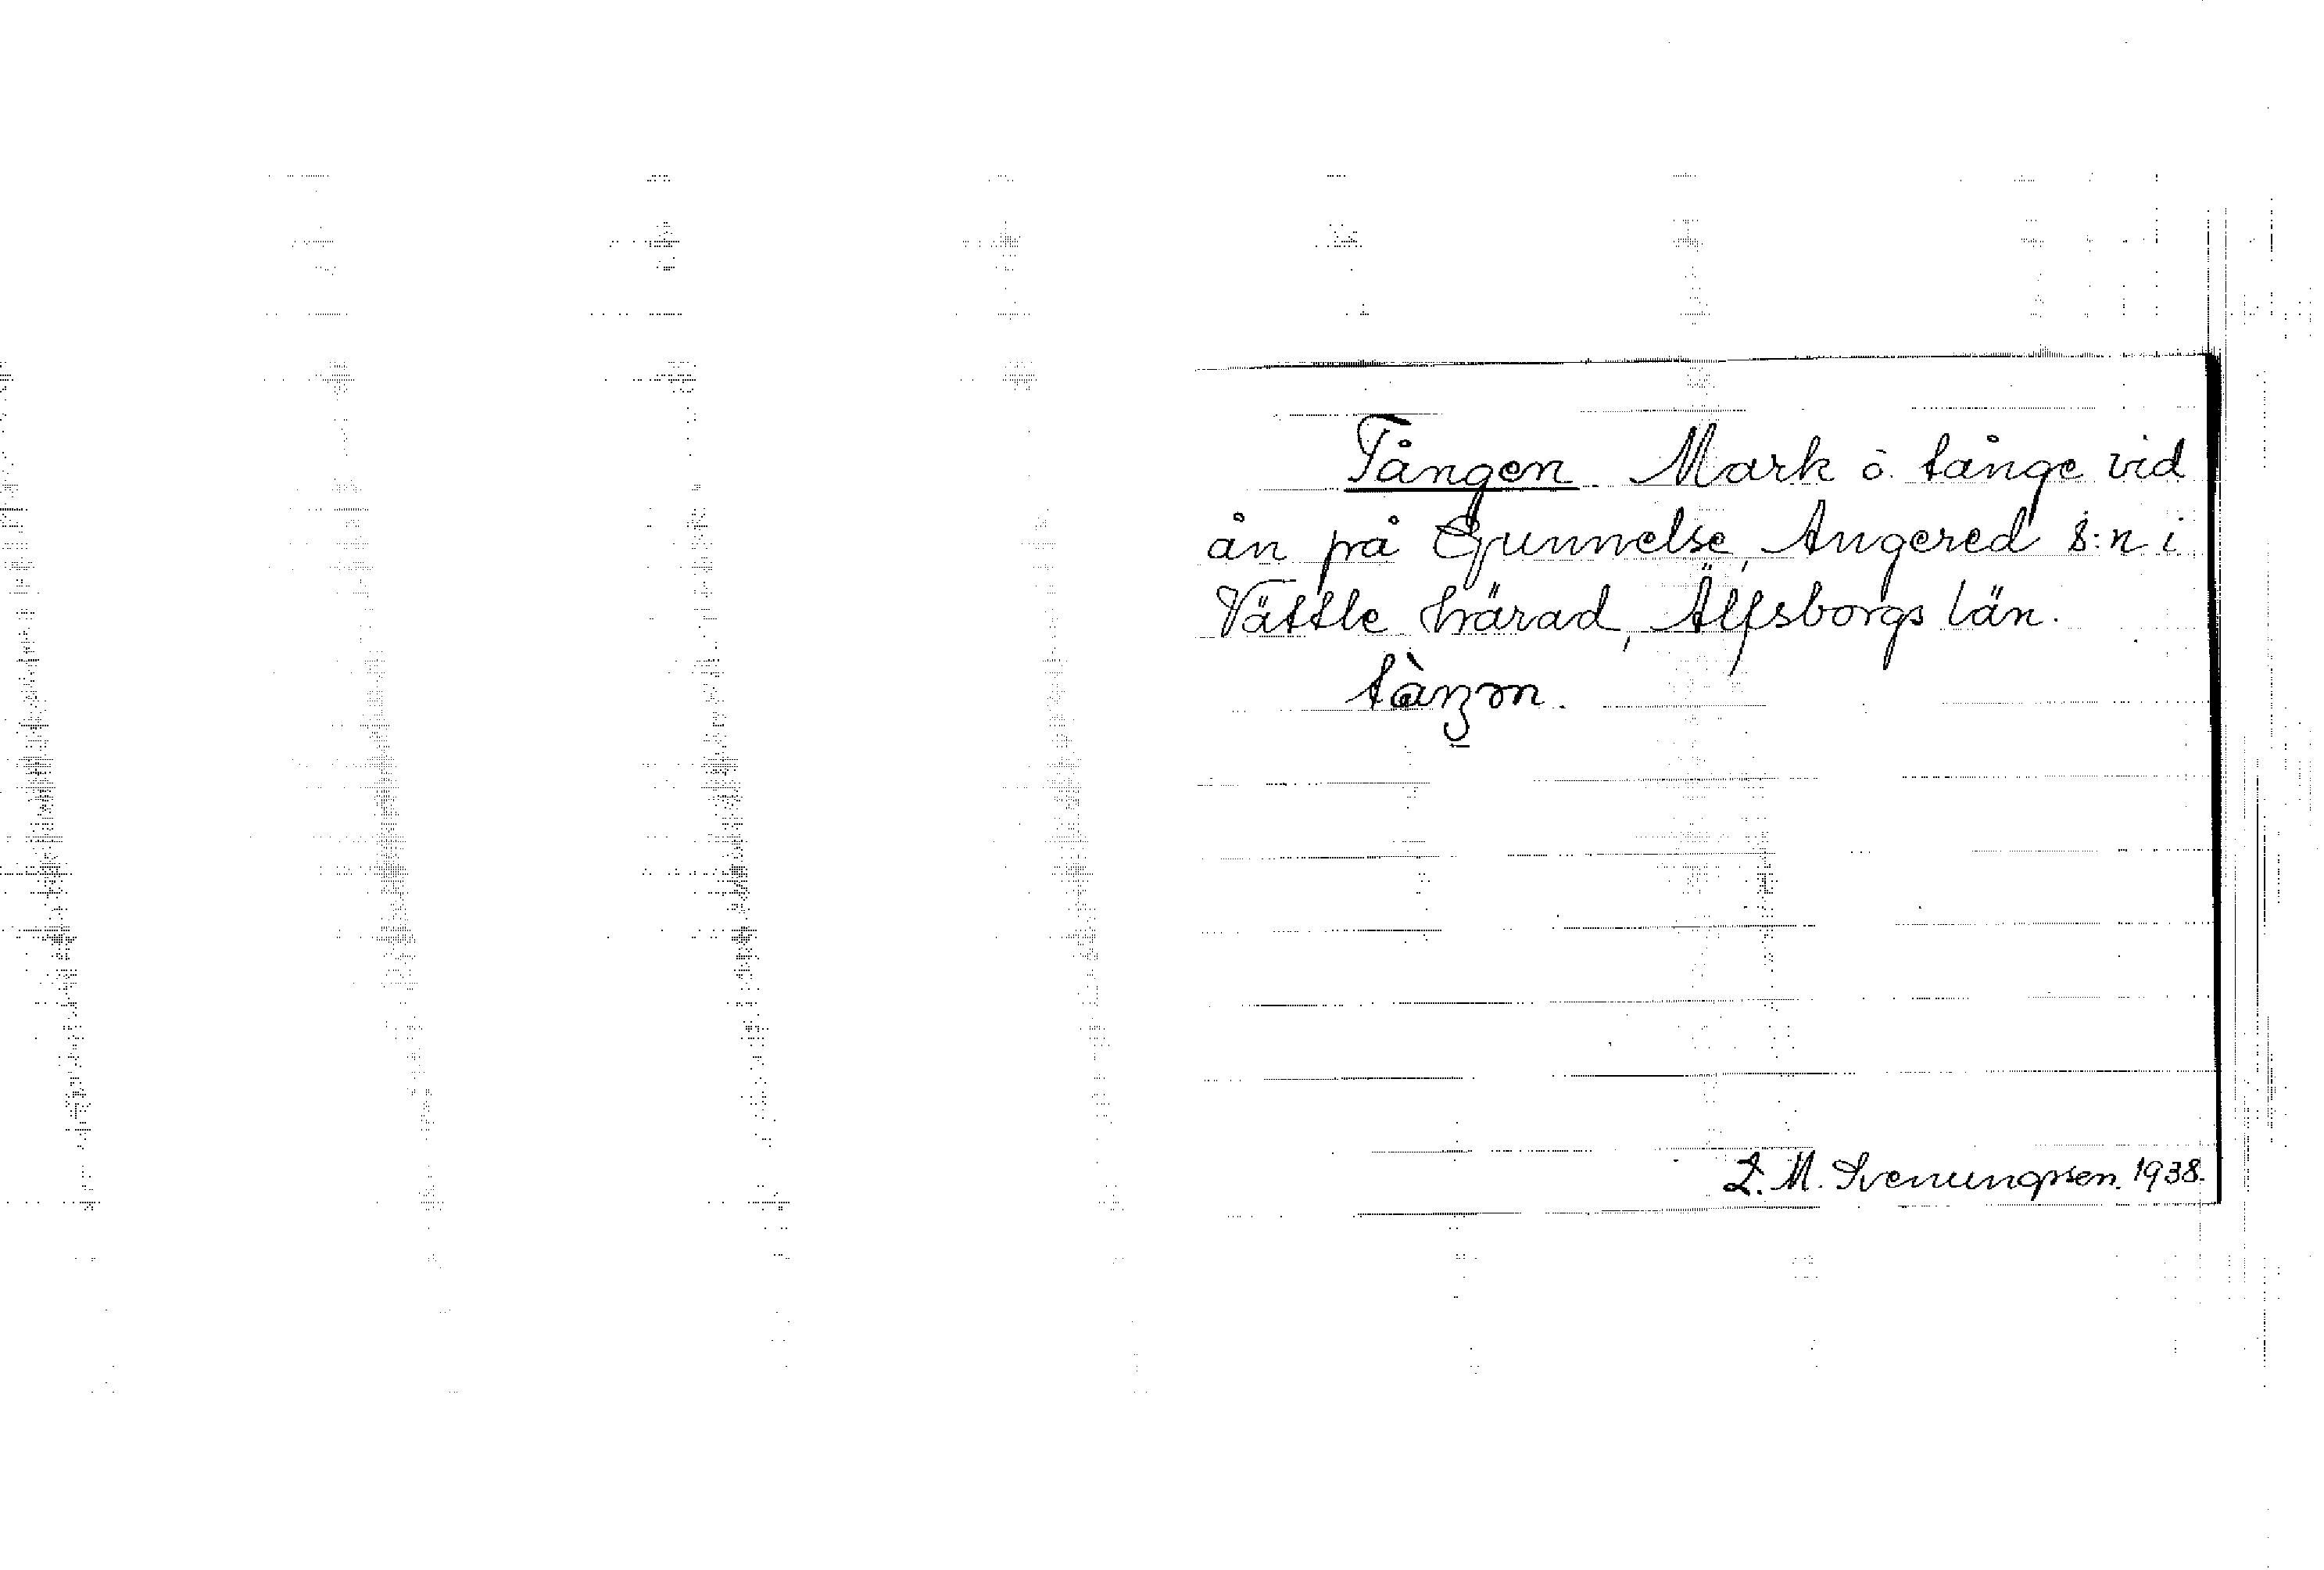 Tången Mark o. tånge vid
ån på Gunnelse, Angered s:n i
Vättle härad, Älfsborgs län.
L. M. Svenungsson. 1938.